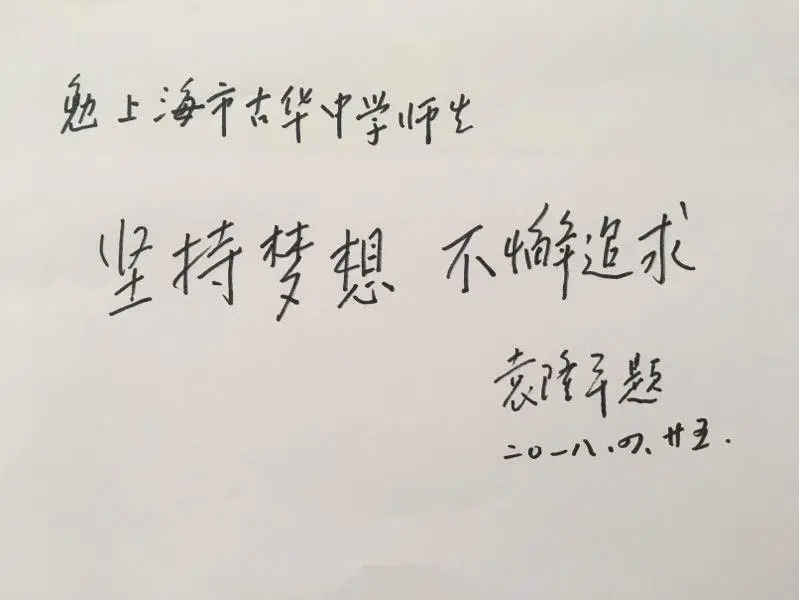 勉上海市古华中学师生
坚持梦想 不懈追求
袁隆平题
二〇一八.四.廿五.